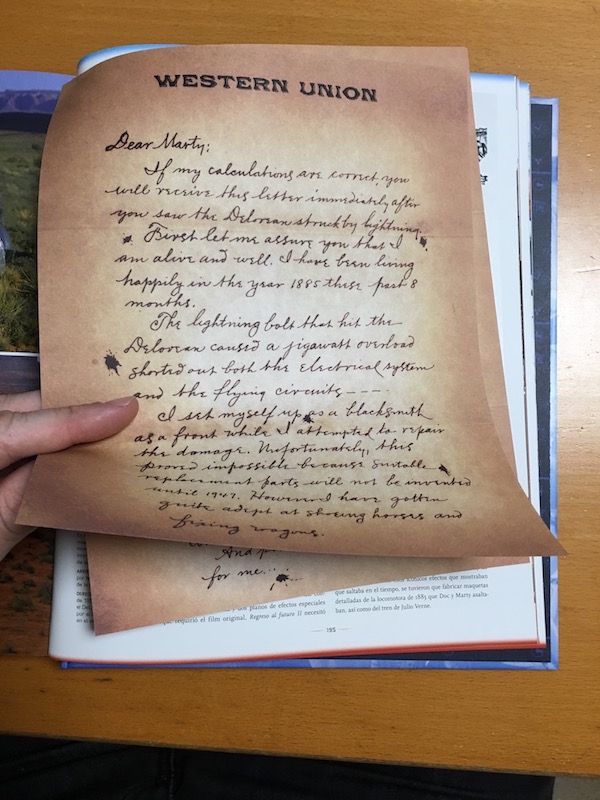 WESTERN UNION
Dear Marty;
If my calculations are correct, you
will receive this letter immediately after
you saw the Delorean struck by lightning.
First let me assure you that I
am alive and well. I have been living
happily in the year 1885 these past 8
months.
The lightning bolt that hit the
Delorean caused a jigawatt overload
shorted out both the electrical system
and the flying circuits----
I set myself up as a blacksmith
as a front while I attempted to repair
the damage. Unfortunately, this
proved impossible because suitable
replacement parts will not be invented
until 1947. However I have gotten
quite adept at shoeing horses and
fixing wagons.
for me...
y dos planos de efectos especiales
que requirió el film original. Regreso al futuro II necesitó
efectos que mostraban
que saltaba en el tiempo, se tuvieron que fabricar maquetas
detalladas de la locomotora de 1885 que Doc y Marty asalta-
ban, así como del tren de Julio Verne.
195